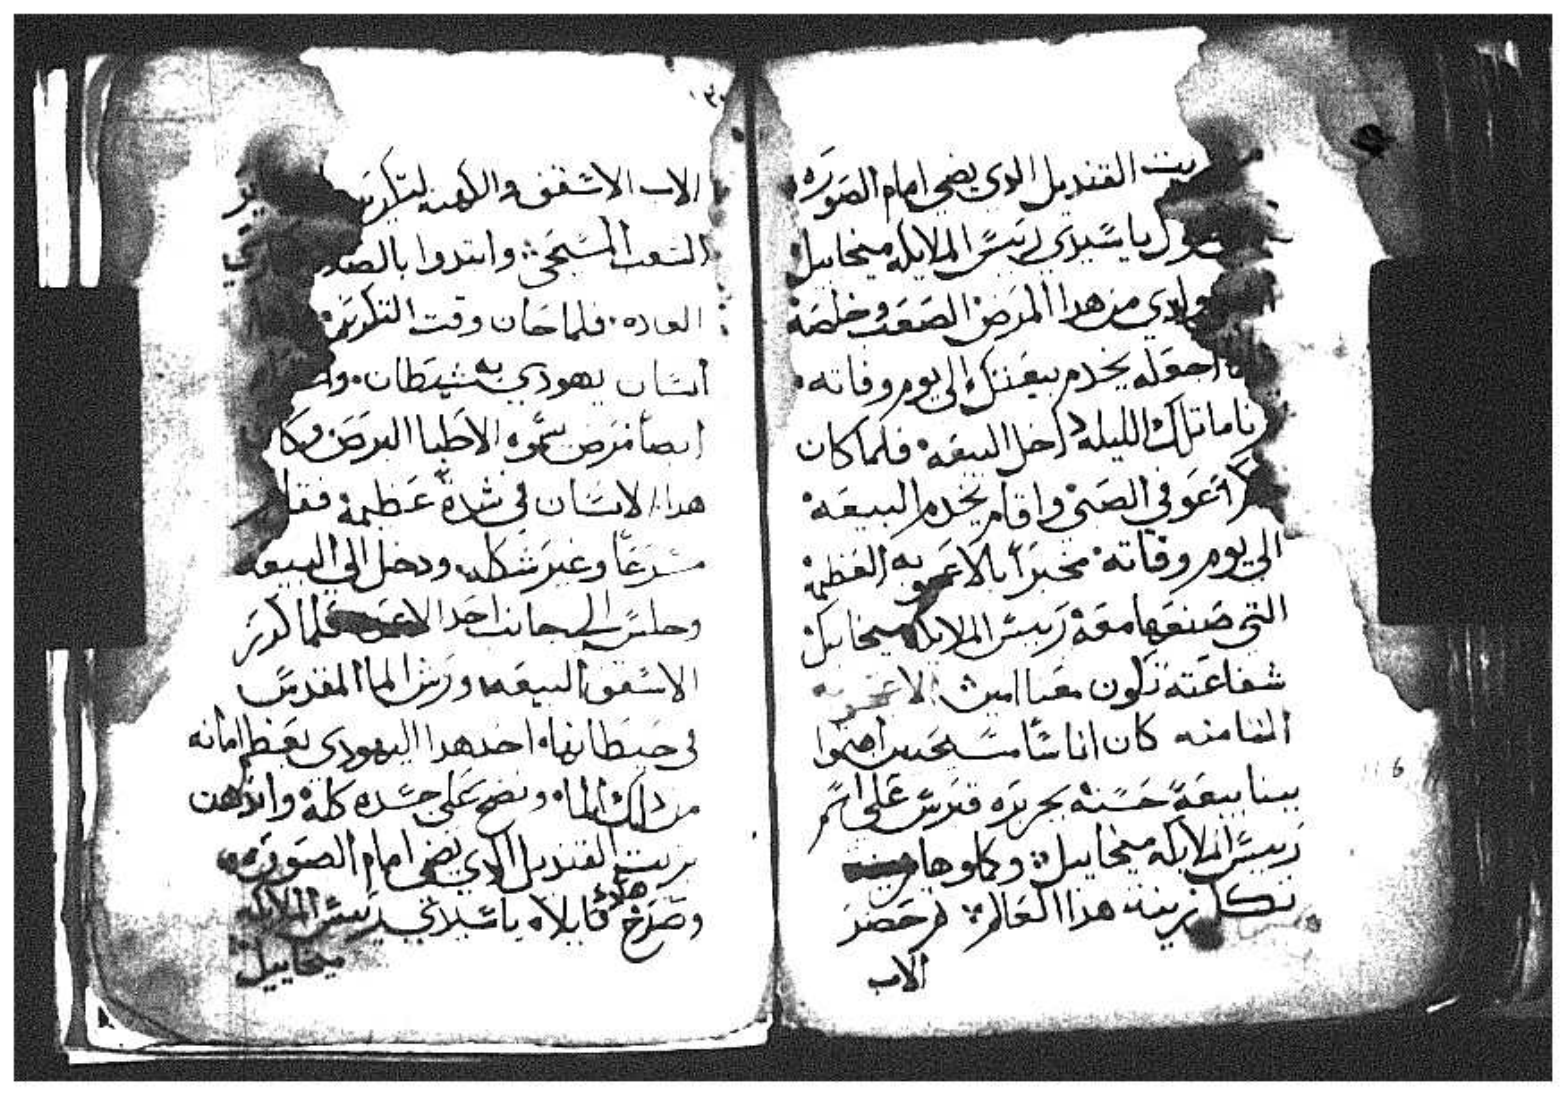 زيت القنديل الدي يضي امام الصوره
يقول يا سيدي رييس الملايكه ميخاييل
ولدي من هدا المرض الصعب وخلصه
اجعله يخدم بيعتك الي يوم وفاته
ناما تلك الليله داخل البيعه فلما كان
في الصبي واقام يخدم البيعه
الي يوم وفاته مخبراً بالاعجوبه العظيمه
التي صنعها معه رييس الملايكه ميخاييل
شفاعته تكون معنا امين الاعجوبه
الثامنه كان اناسًا مسيحيين اهتموا
ببنا بيعةً حسنه بجزيره قبرس علي اسم
رييس الملايكه ميخاييل وكملوها
بكل زينه هدا العالم تم حضر
الاب
١٣٠
الاب الاسقف والكهنه لتكريس
الشعب المسيحي وابتدوا بالصلاه
العاده فلما حان وقت التكريز
انسان يهودي به شيطان
ايضاً مرض سموه الاطبا البرص وكان
هدا الانسان في شدة عظيمة فقام
مسرعًا وغير شكله ودخل الي البيعه
وجلس الي جانب احد الاعمده فلما كرز
الاسقف البيعه ورش الما المقدس
في حيطانها اخد هدا اليهودي بعظم امانه
من دلك الما ونضح علي جسده كله وادهن
بزيت القنديل الدي يضي امام الصوره
وصرخ هكدا قايلا يا سيدي رييس الملايكه
ميخاييل
116